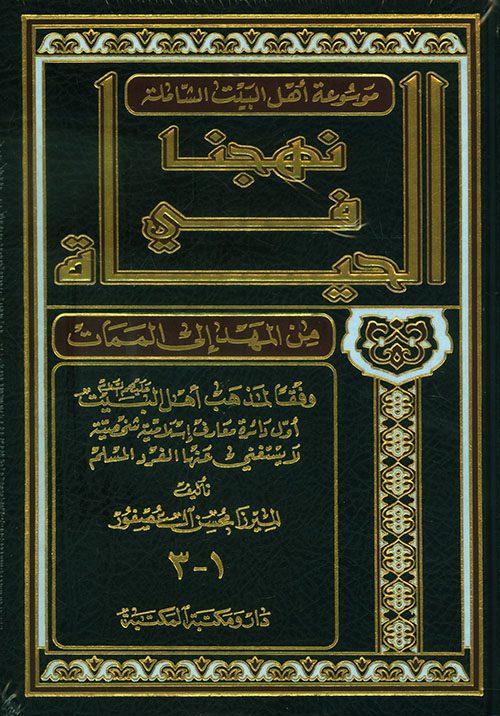 موسوعة أهل البيت الشاملة
نهجنا
في
الحياة
من المهد إلى الممات
وفقًا لمذهب أهل البيت عليهم السلام
أول دائرة معارف إسلامية شخصية
لا يستغني عنها الفرد المسلم
تأليف
الميرزا محسن آل عصفور
١-٣
دار ومكتبة المكتبة